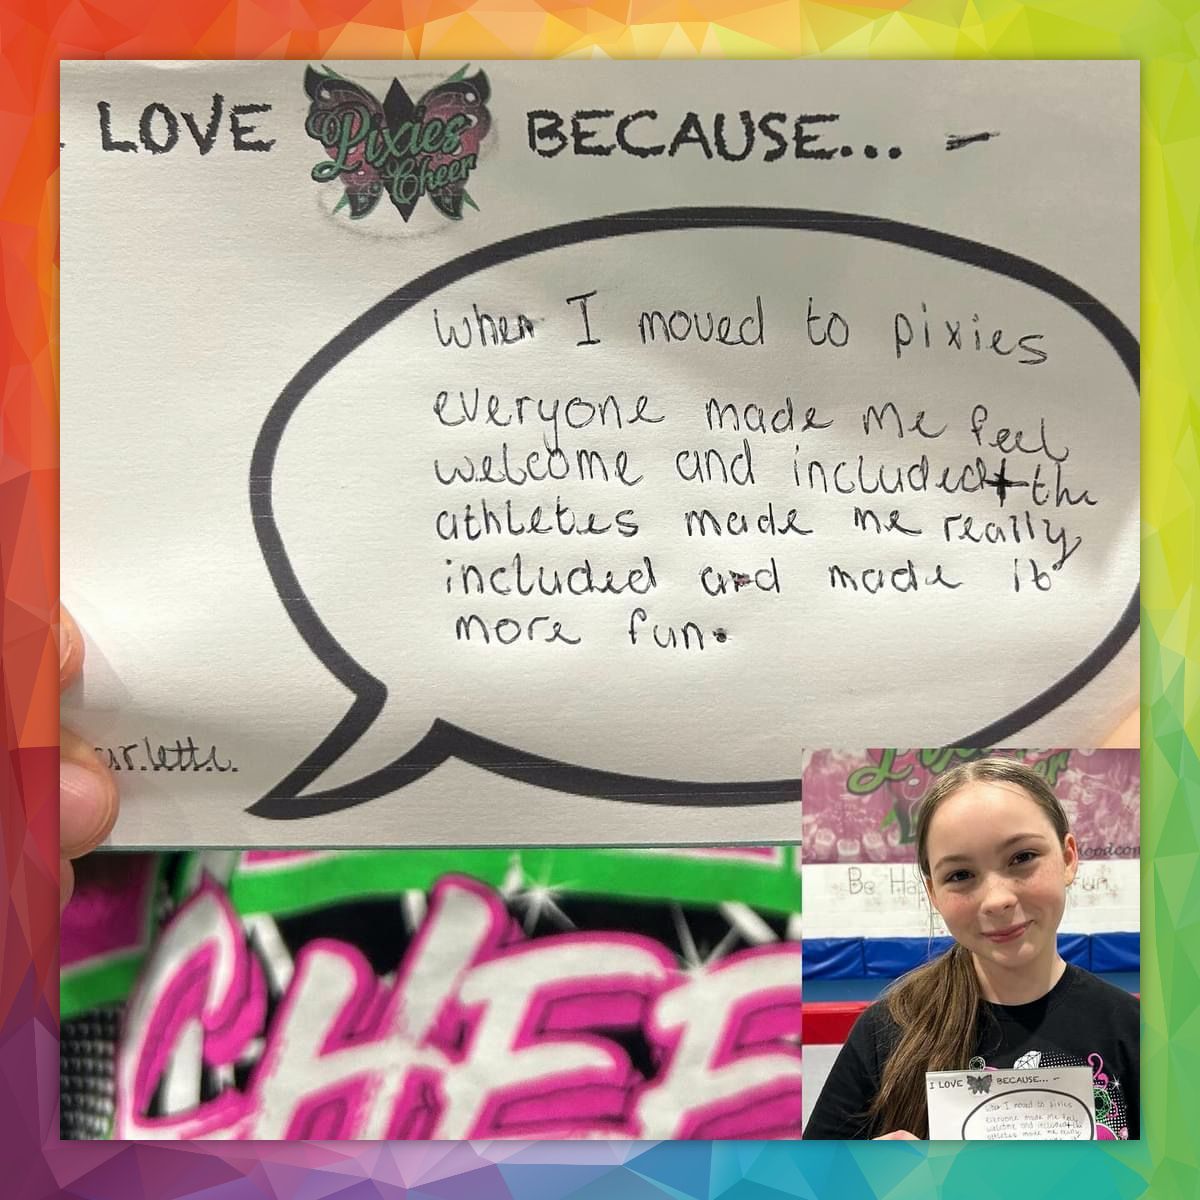 LOVE Pixies Cheer BECAUSE... -
when I moved to pixies
everyone made me feel
welcome and included + the
athletes made me really
included and made it
more fun.
arlette
CHEE
Be Ha Fun
I LOVE BECAUSE... -
When I moved to pixies
everyone made me feel
welcome and included + the
athletes made me really